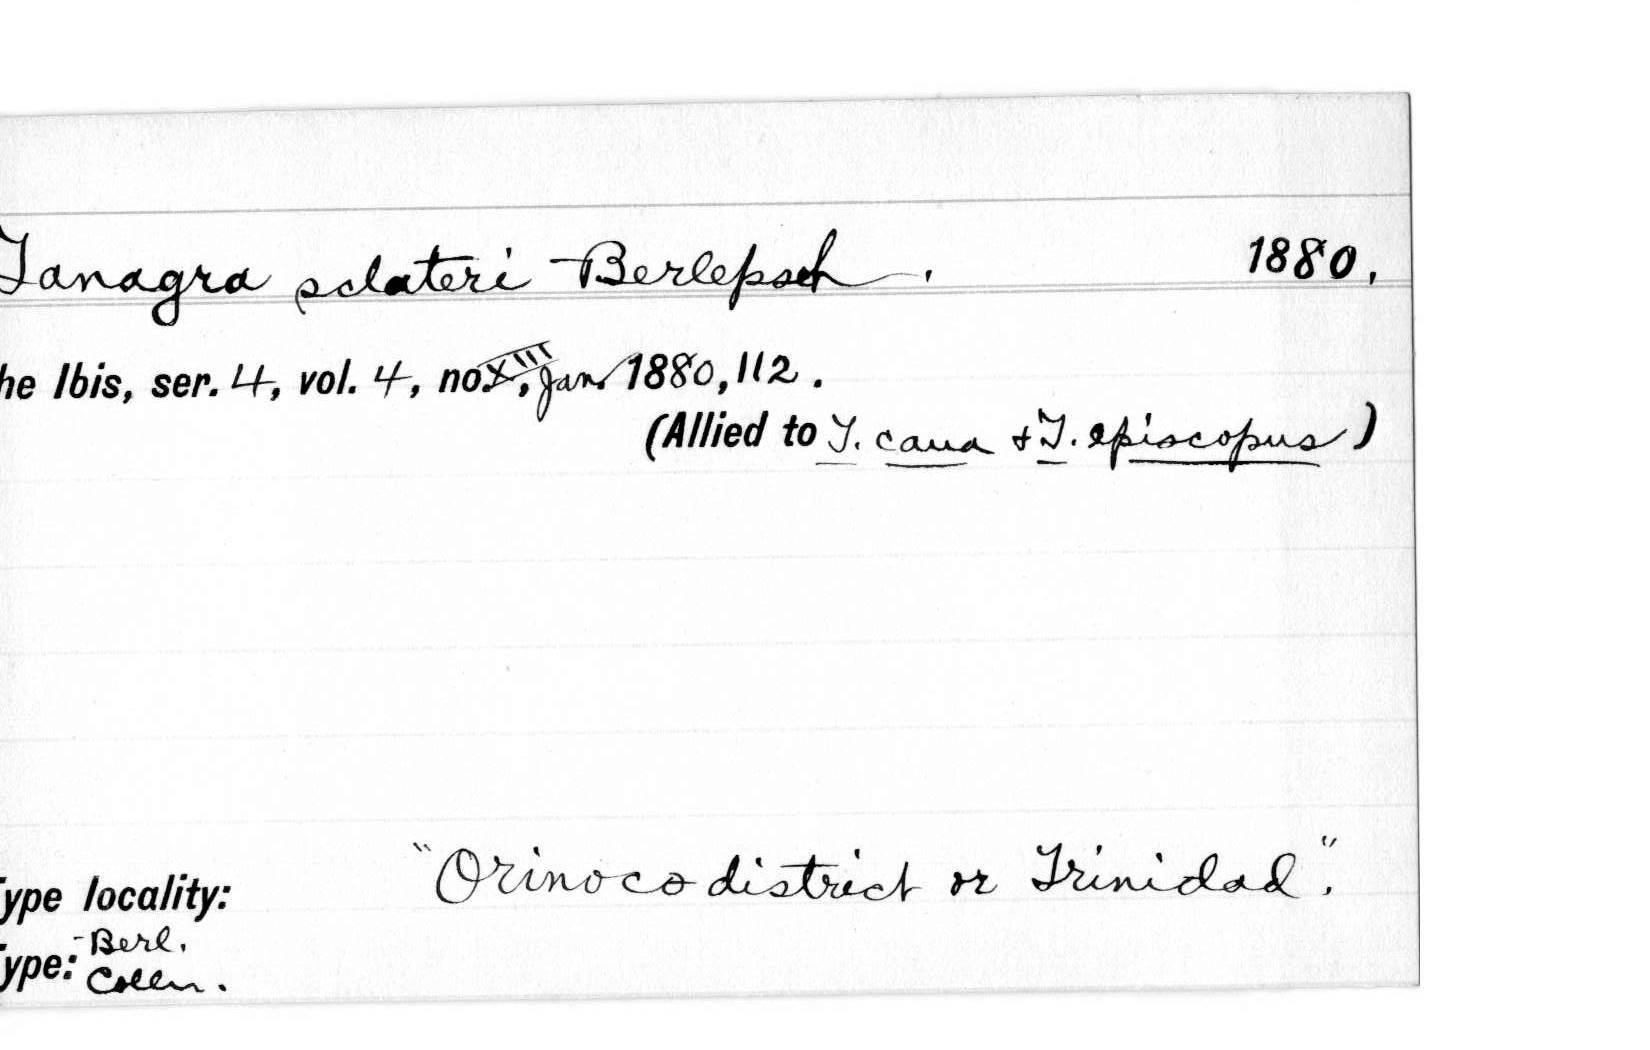 Tanagra sclateri Berlepsch. 1880.
he Ibis, ser. 4, vol. 4, no. XIII, Jan. 1880, 112.
(Allied to T. cana & T. episcopus)
Type locality: "Orinoco district or Trinidad".
Type: Berl.
Colln.